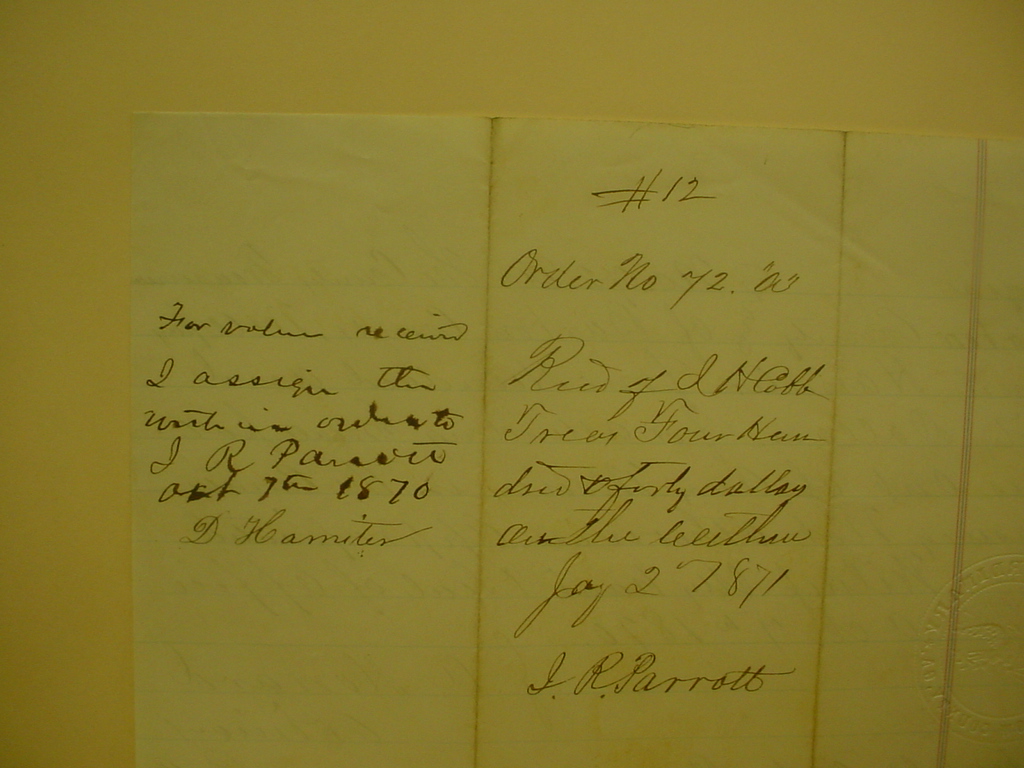 For value received
I assign the
within order to
J R Parrott
Oct 7th 1870
D Hamiter
#12
Order No 72. "A"
Recd of J H Cobb
Treas Four Hun
dred & forty dollars
on the within
Jay 2d 1871
J. R. Parrott